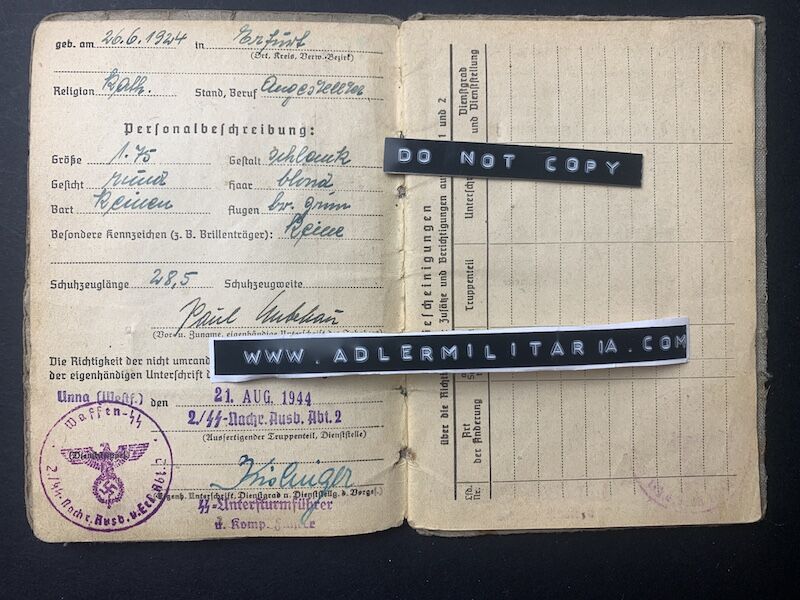 geb. am 26.6.1924 in Erfurt
(Ort, Kreis, Verw.-Bezirk)
Religion Kath. Stand, Beruf Angestellter
Personalbeschreibung:
Größe 1.75 Gestalt schlank
Gesicht rund Haar blond
Bart Keinen Augen br. grün
Besondere Kennzeichen (z. B. Brillenträger): Keine
Schuhzeuglänge 28,5 Schuhzeugweite
Paul
(Vor- u. Zuname, eigenhändige Unterschrift
Die Richtigkeit der nicht umrand
der eigenhändigen Unterschrift
Unna (Westf.) den 21. AUG. 1944
2/SS-Nachr. Ausb. Abt. 2
(Ausfertigender Truppenteil, Dienststelle)
Waffen-SS
(Dienststempel)
2/SS-Nachr. Ausb. u. Ers. Abt. 2
(Eigenh. Unterschrift, Dienstgrad u. Dienststellg. d. Vorges.)
SS-Untersturmführer
u. Komp.
DO NOT COPY
WWW.ADLERMILITARIA.COM
Bescheinigungen
über die Richt
Zusätze und Berichtigungen au
1 und 2
Lfd. Nr.
Art der Änderung
Truppenteil
Unterschr
Dienstgrad und Dienststellung